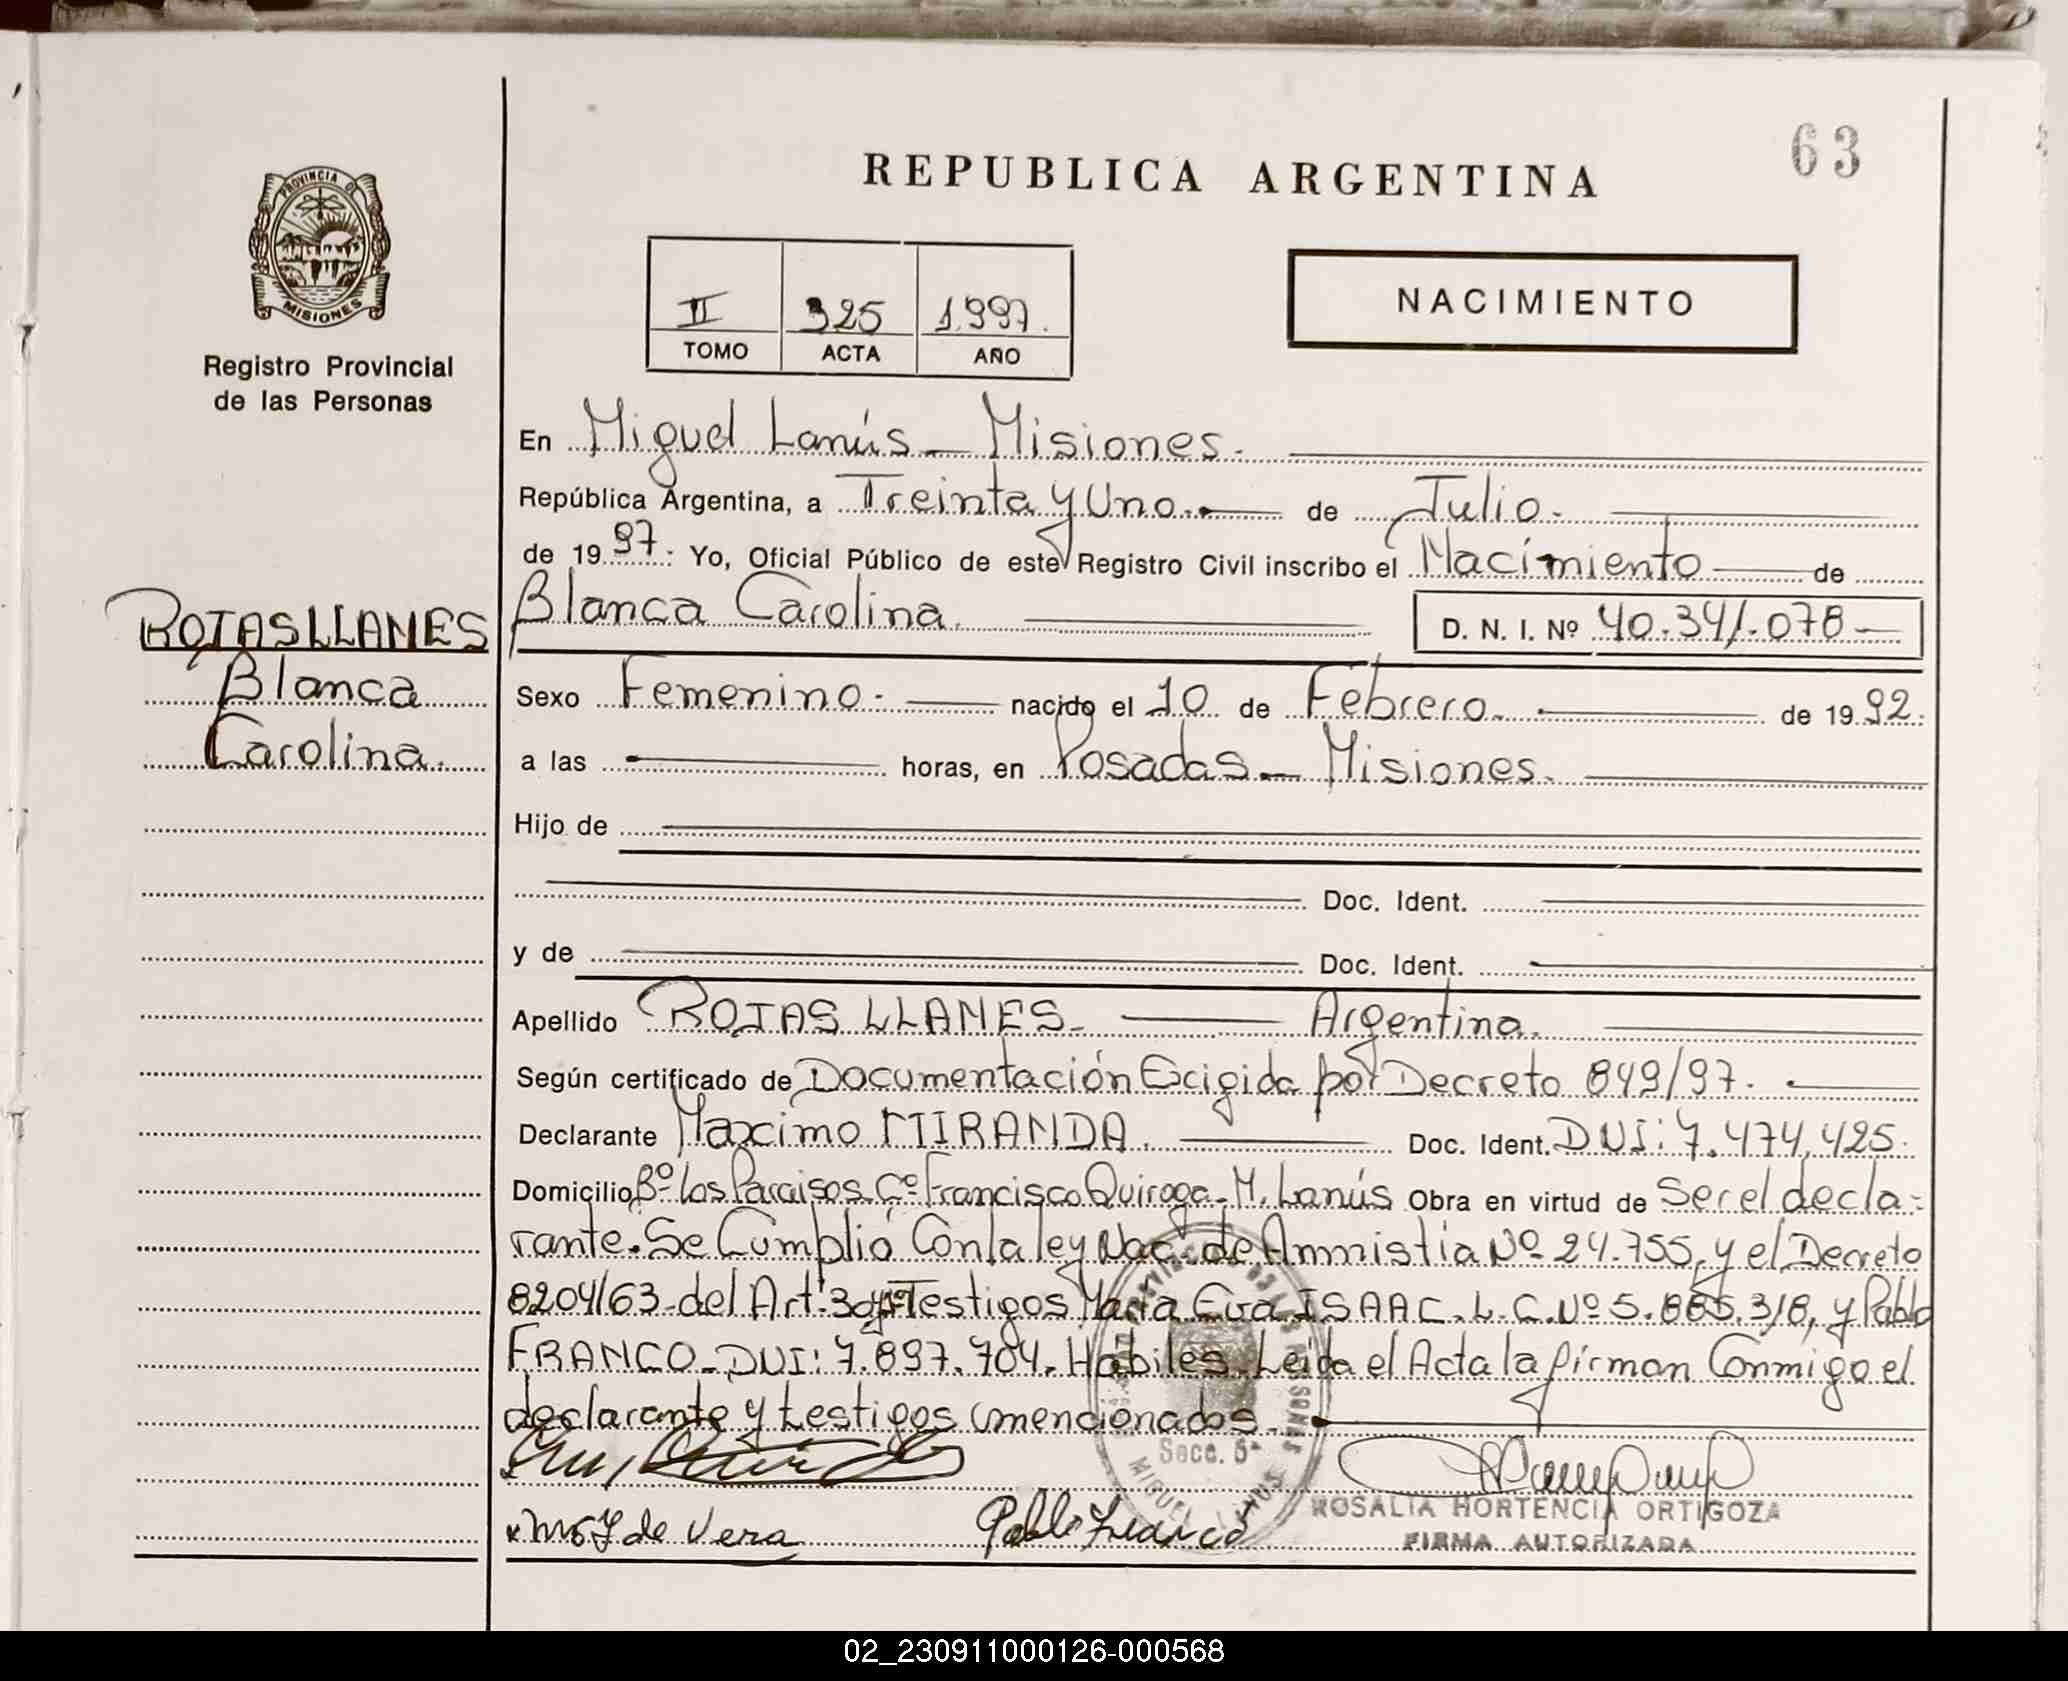 63
REPUBLICA ARGENTINA
PROVINCIA DE
MISIONES
II 325 1.997.
TOMO ACTA AÑO
NACIMIENTO
Registro Provincial
de las Personas
En Miguel Lanús - Misiones.
República Argentina, a Treinta y Uno. de Julio.
de 19 97. Yo, Oficial Público de este Registro Civil inscribo el Nacimiento de
ROJAS LLANES
Blanca
Carolina.
Blanca Carolina. D. N. I. Nº 40.341.078
Sexo Femenino. nacido el 10 de Febrero. de 19 92.
a las horas, en Posadas - Misiones.
Hijo de
Doc. Ident.
y de Doc. Ident.
Apellido ROJAS LLANES. Argentina.
Según certificado de Documentación Excigida por Decreto 849/97.
Declarante Maximo MIRANDA. Doc. Ident. DNI: 7.474.425.
Domicilio Bº Los Paraisos. Cº Francisco Quiroga - M. Lanús Obra en virtud de Ser el decla-
rante. Se Cumplió Con la ley Nac. de Amnistia Nº 24.755, y el Decreto
8204/63 del Art. Testigos Maria Eva ISAAC. L.C. Nº 5. y Pablo
FRANCO - DNI: 7.897.704. Habiles. Leida el Acta la firman Conmigo el
declarante y testigos mencionados.
Secc. 5ª
MIGUEL LANUS
de Vera
Pablo Franco
ROSALIA HORTENCIA ORTIGOZA
FIRMA AUTORIZADA
02_230911000126-000568